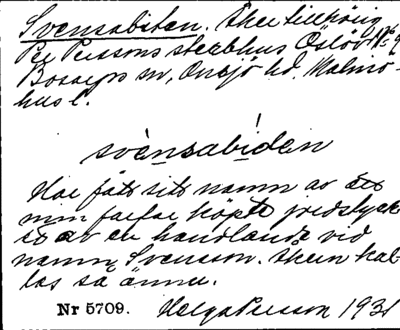 Svensabiten. Åker tillhörig
Per Perssons sterbhus Öslöv No 9
Bosarps sn, Onsjö hd. Malmö-
hus l.
svènsabíden
Har fått sitt namn av att
min farfar köpte jordstyck
et av en handlande vid
namn Svensson. Åkern kal
las så ännu.
Nr 5709. Helga Persson 1931